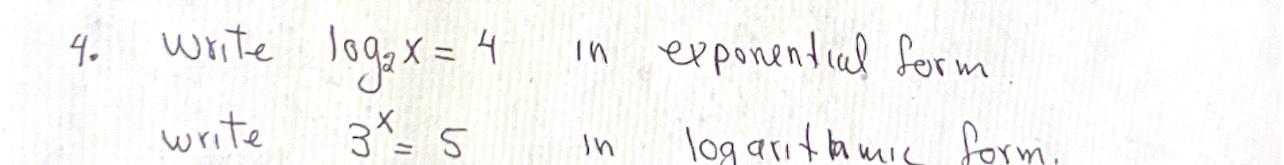 4. Write log₂x = 4 in exponential form.
write 3ˣ = 5 in logarithmic form.